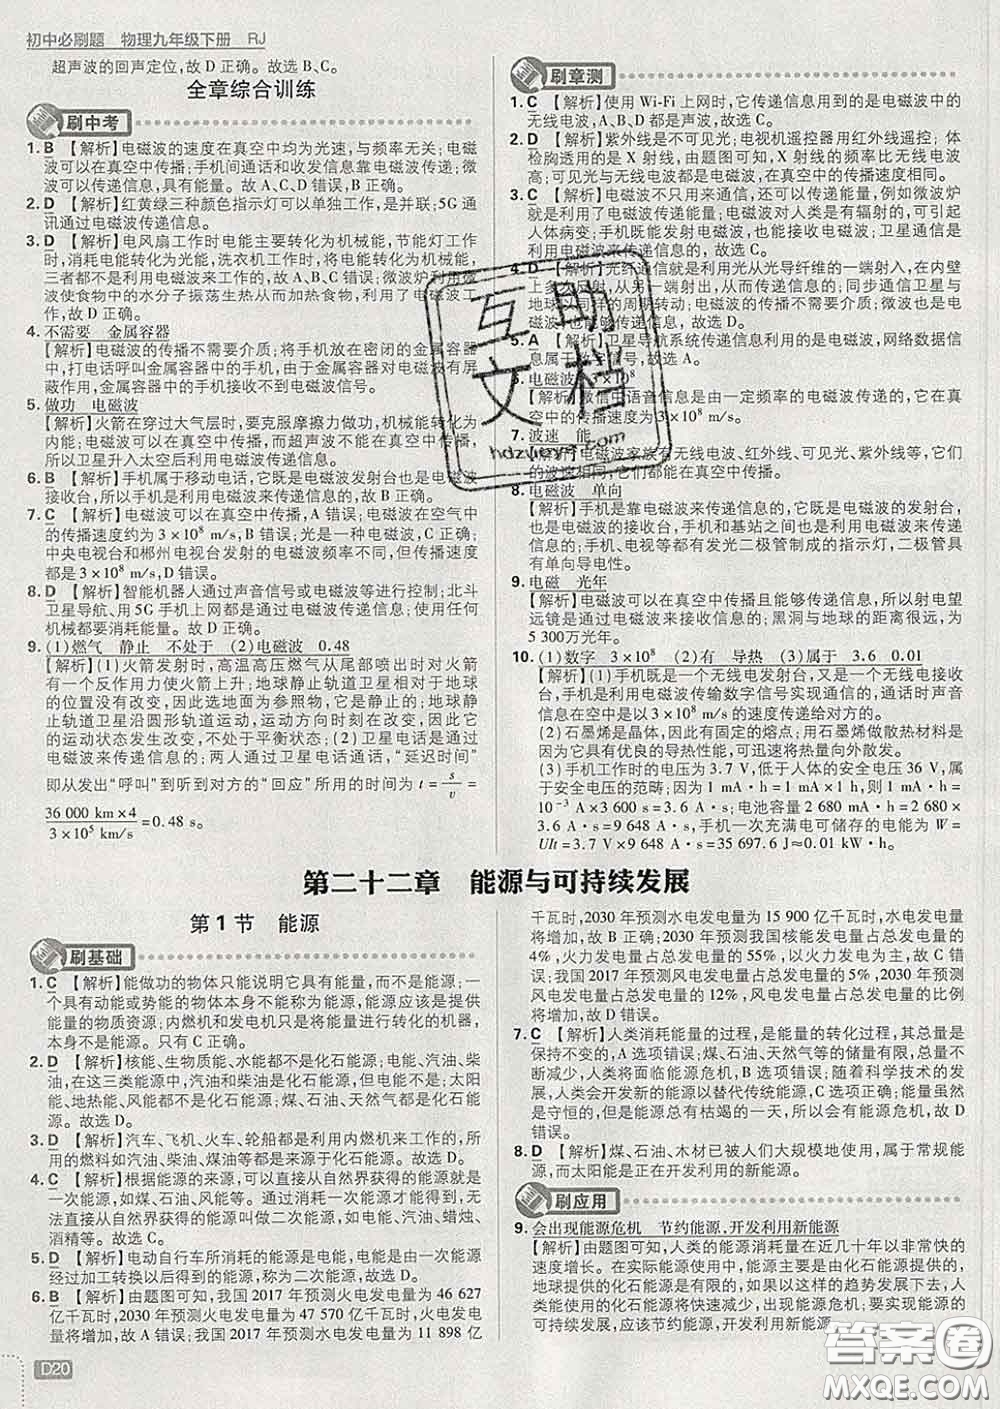 初中必刷题 物理九年级下册 RJ
超声波的回声定位,故 D 正确。故选 B、C。
全章综合训练
刷中考
1. B 【解析】电磁波的速度在真空中均为光速,与频率无关;电磁
波可以在真空中传播;手机间通话和收发信息靠电磁波传递;微
波可以传递信息,具有能量。故 A、C、D 错误,B 正确。
2. D 【解析】红黄绿三种颜色指示灯可以单独工作,是并联;5G 通
讯通过电磁波传递信息。
3. D 【解析】电风扇工作时电能主要转化为机械能,节能灯工作
时,消耗电能转化为光能,洗衣机工作时,将电能转化为机械能,
三者都不是利用电磁波来工作的,故 A、B、C 错误;微波炉利用微
波使食物中的水分子振荡生热而加热食物,利用了电磁波工作,
故 D 正确。
4. 不需要 金属容器
【解析】电磁波的传播不需要介质;将手机放在密闭的金属容器
中,打电话呼叫金属容器中的手机,由于金属容器对电磁波有屏
蔽作用,金属容器中的手机接收不到电磁波信号。
5. 做功 电磁波
【解析】火箭在穿过大气层时,要克服摩擦力做功,机械能转化为
内能;电磁波可以在真空中传播,而超声波不能在真空中传播,
所以卫星升入太空后利用电磁波传递信息。
6. B 【解析】手机属于移动电话,它既是电磁波发射台也是电磁波
接收台,所以手机是利用电磁波来传递信息的,故选 B。
7. C 【解析】电磁波可以在真空中传播,A 错误;电磁波在空气中
的传播速度约为 3×10⁸ m/s,C 正确;光是一种电磁波,B 错误;
中央电视台和郴州电视台发射的电磁波频率不同,但传播速度
都是 3×10⁸ m/s,D 错误。
8. D 【解析】智能机器人通过声音信号或电磁波等进行控制;北斗
卫星导航、用 5G 手机上网都是通过电磁波传递信息。使用任何
机械都要消耗能量。故选 D。
9. (1)燃气 静止 不处于 (2)电磁波 0.48
【解析】(1)火箭发射时,高温高压燃气从尾部喷出时对火箭
有一个反作用力使火箭上升;地球静止轨道卫星相对于地球
的位置没有改变,因此选地面为参照物,它是静止的;地球静
止轨道卫星沿圆形轨道运动,运动方向时刻在改变,因此它
的运动状态发生改变,不处于平衡状态;(2)卫星电话是通过
电磁波来传递信息的;两人通过卫星电话通话,“延迟时间”
即从发出“呼叫”到听到对方的“回应”所用的时间为 t = s/v =
36 000 km×4 / 3×10⁵ km/s = 0.48 s。
刷章测
1. C 【解析】使用 Wi-Fi 上网时,它传递信息用到的是电磁波中的
无线电波,A、B、D 都是声波,故选 C。
2. D 【解析】紫外线是不可见光;电视机遥控器用红外线遥控;体
检胸透用的是 X 射线,由题图可知,X 射线的频率比无线电波
高;可见光与无线电波都是电磁波,在真空中的传播速度相同。
3. C 【解析】电磁波不只用来通信,还可以传递能量,例如微波炉
就是利用了电磁波传递能量;电磁波对人类是有辐射的,可引起
人体病变;手机既能发射电磁波,也能接收电磁波;卫星通信是
利用电磁波来传递信息的,故选 C。
4. D 【解析】光纤通信就是利用光从光导纤维的一端射入,在内壁
上多次反射,从另一端射出,来传递信息的;同步通信卫星与
地球以同样的周期转动;电磁波的传播不需要介质;微波也是电
磁波,能传递信息,故选 D。
5. A 【解析】卫星导航系统传递信息利用的是电磁波,网络数据信
息属于数字信号,故选 A。
6. 电磁波 3×10⁸
【解析】微信中语音信息是由一定频率的电磁波传递的,它在真
空中的传播速度为 3×10⁸ m/s。
7. 波速 能
【解析】电磁波家族有无线电波、红外线、可见光、紫外线等,它们
的波速相同,它们都能在真空中传播。
8. 电磁波 单向
【解析】手机是靠电磁波来传递信息的,它既是电磁波的发射台,
也是电磁波的接收台,手机和基站之间也可以靠电磁波来传递
信息的;手机、电视等都有发光二极管制成的指示灯,二极管具
有单向导电性。
9. 电磁 光年
【解析】电磁波可以在真空中传播且能够传递信息,所以射电望
远镜是通过电磁波来接收信息的;黑洞与地球的距离很远,为
5 300万光年。
10. (1)数字 3×10⁸ (2)有 导热 (3)属于 3.6 0.01
【解析】(1)手机既是一个无线电发射台,又是一个无线电接收
台,它利用电磁波传输数字信号实现通信的,通话时声音
信息在空中是以 3×10⁸ m/s 的速度传播给对方的。
(2)石墨烯是晶体,因此有固定的熔点;用石墨烯做散热材料是
因为它具有优良的导热性能,可迅速将热量向外散发。
(3)手机工作时的电压为 3.7 V,低于人体的安全电压 36 V,属
于安全电压的范畴;因为 1 mA·h=1 mA×1 h,则 1 mA·h=
10⁻³ A×3 600 s=3.6 A·s;电池容量 2 680 mA·h=2 680×
3.6 A·s=9 648 A·s,手机一次充满电可储存的电能为 W=
UIt=3.7 V×9 648 A·s=35 697.6 J≈0.01 kW·h。
第二十二章 能源与可持续发展
第 1 节 能源
刷基础
1. C 【解析】能做功的物体只能说明它具有能量,而不是能源;一
个具有动能或势能的物体本身不能称为能源,能源应该是提供
能量的物质资源;内燃机和发电机只是将能量进行转化的机器,
本身不是能源。只有 C 正确。
2. D 【解析】核能、生物质能、水能都不是化石能源;电能、汽油、柴
油,在这三类能源中,汽油和柴油是化石能源,但电能不是;太阳
能、地热能、风能都不是化石能源;煤、石油、天然气都是化石能
源,故选 D。
3. D 【解析】汽车、飞机、火车、轮船都是利用内燃机来工作的,所
用的燃料如汽油、柴油、煤油等都是来源于化石能源。故选 D。
4. C 【解析】根据能源的来源,可以直接从自然界获得的能源就是
一次能源,如煤、石油、风能等。通过消耗一次能源才能得到,无
法直接从自然界获得的能源叫做二次能源,如电能、汽油、蜡烛、
酒精等。故选 C。
5. D 【解析】电动自行车所消耗的能源是电能,电能由一次能源
经过加工转换以后得到,称为二次能源,故选 D。
6. B 【解析】由题图可知,我国 2017 年火力发电发电量为 46 627
亿千瓦时,2030 年预测火电发电量为 47 570 亿千瓦时,火电发电
量将增加,故 A 错误;我国 2017 年水电发电量为 11 898 亿
千瓦时,2030 年预测水电发电量为 15 900 亿千瓦时,水电发电量
将增加,故 B 正确;2030 年预测我国核能发电量占总发电量的
4%,火力发电量占总发电量的 55%,以火力发电为主,故 C 错
误;我国 2017 年预测风电发电量占总发电量的 5%,2030 年预测
风电发电量占总发电量的 12%,风电发电量占总发电量的比例
将增加,故 D 错误。
7. C 【解析】人类消耗能量的过程,是能量的转化过程,其总量是
保持不变的,A 选项错误;煤、石油、天然气等的储量有限,总量
不断减少,人类将面临能源危机,B 选项错误;随着科学技术的发
展,人类会开发新的能源以替代传统能源,C 选项正确;能量虽然
是守恒的,但是能源总有枯竭的一天,所以会有能源危机,故 D
错误。
8. D 【解析】煤、石油、木材已被人们大规模地使用,属于常规能
源,而太阳能是正在开发利用的新能源。
刷应用
9. 会出现能源危机 节约能源,开发利用新能源
【解析】由题图可知,人类的能源消耗量在近几十年以非常惊人的
速度增长。在实际能源使用中,主要是使用化石能源提供的,
地球提供的化石能源是有限的,如果以这样的趋势发展下去,人
类能使用的化石能源将快速减少,出现能源危机;要实现能源的
可持续发展,应该节约能源,开发利用新能源。
D20
互助
文档
hdzuoye.com
答案圈
MXQE.COM